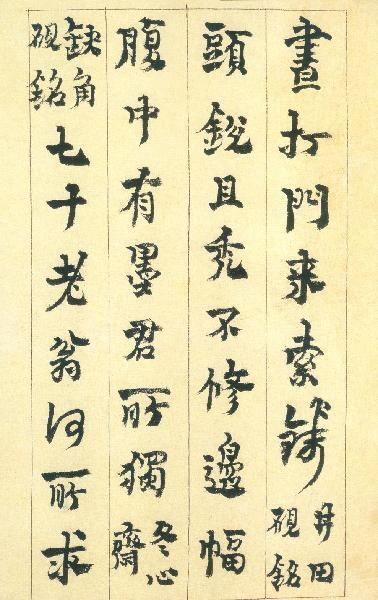 晝打門來索錢 井田硯銘
頭銳且禿不修邊幅
腹中有墨君所獨 冬心齋
缺角硯銘 七千老翁何所求